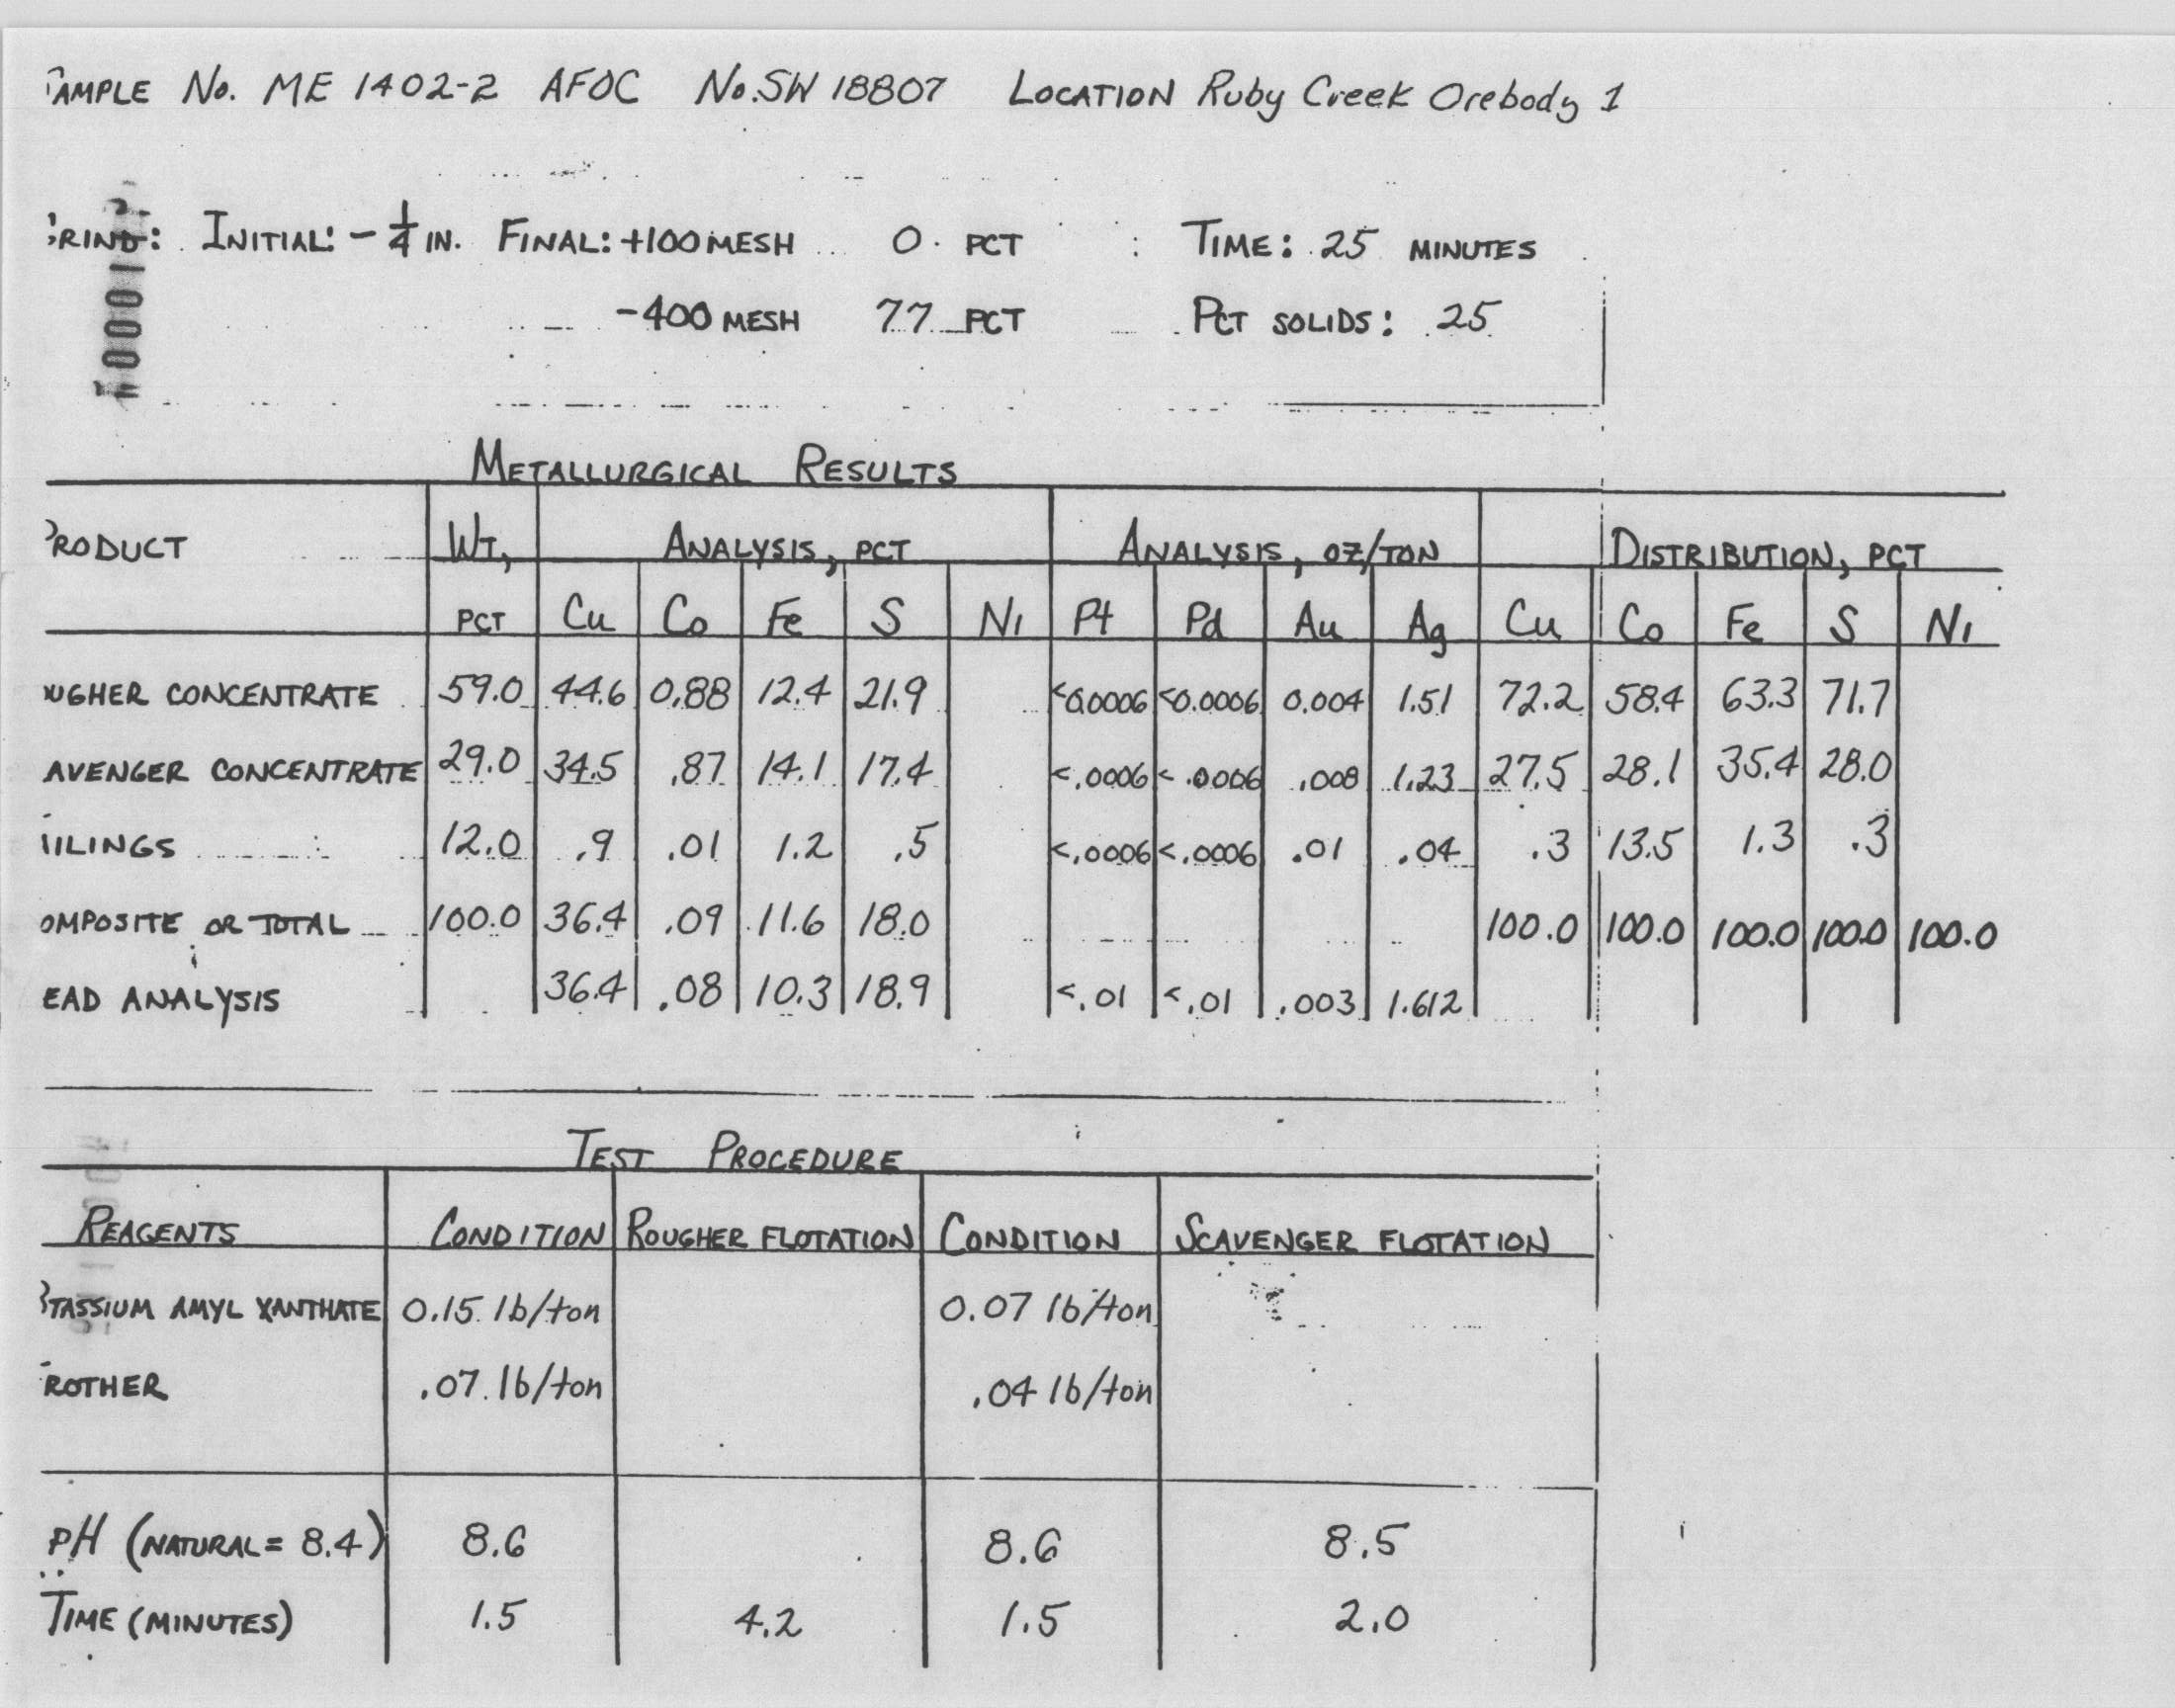 AMPLE No. ME 1402-2 AFOC No. SW 18807 LOCATION Ruby Creek Orebody 1
RIND: INITIAL: - 1/4 IN. FINAL: +100 MESH 0. PCT : TIME: 25 MINUTES
-400 MESH 77 PCT PCT SOLIDS: 25
METALLURGICAL RESULTS
RODUCT WT, ANALYSIS, PCT ANALYSIS, OZ/TON DISTRIBUTION, PCT
PCT Cu Co Fe S Ni Pt Pd Au Ag Cu Co Fe S Ni
UGHER CONCENTRATE 59.0 44.6 0.88 12.4 21.9 <0.0006 <0.0006 0.004 1.51 72.2 58.4 63.3 71.7
AVENGER CONCENTRATE 29.0 34.5 .87 14.1 17.4 <.0006 <.0006 .008 1.23 27.5 28.1 35.4 28.0
ILINGS 12.0 .9 .01 1.2 .5 <.0006 <.0006 .01 .04 .3 13.5 1.3 .3
OMPOSITE OR TOTAL 100.0 36.4 .09 11.6 18.0 100.0 100.0 100.0 100.0 100.0
EAD ANALYSIS 36.4 .08 10.3 18.9 <.01 <.01 .003 1.612
TEST PROCEDURE
REAGENTS CONDITION ROUGHER FLOTATION CONDITION SCAVENGER FLOTATION
TASSIUM AMYL XANTHATE 0.15 lb/ton 0.07 lb/ton
ROTHER .07 lb/ton .04 lb/ton
pH (NATURAL = 8.4) 8.6 8.6 8.5
TIME (MINUTES) 1.5 4.2 1.5 2.0